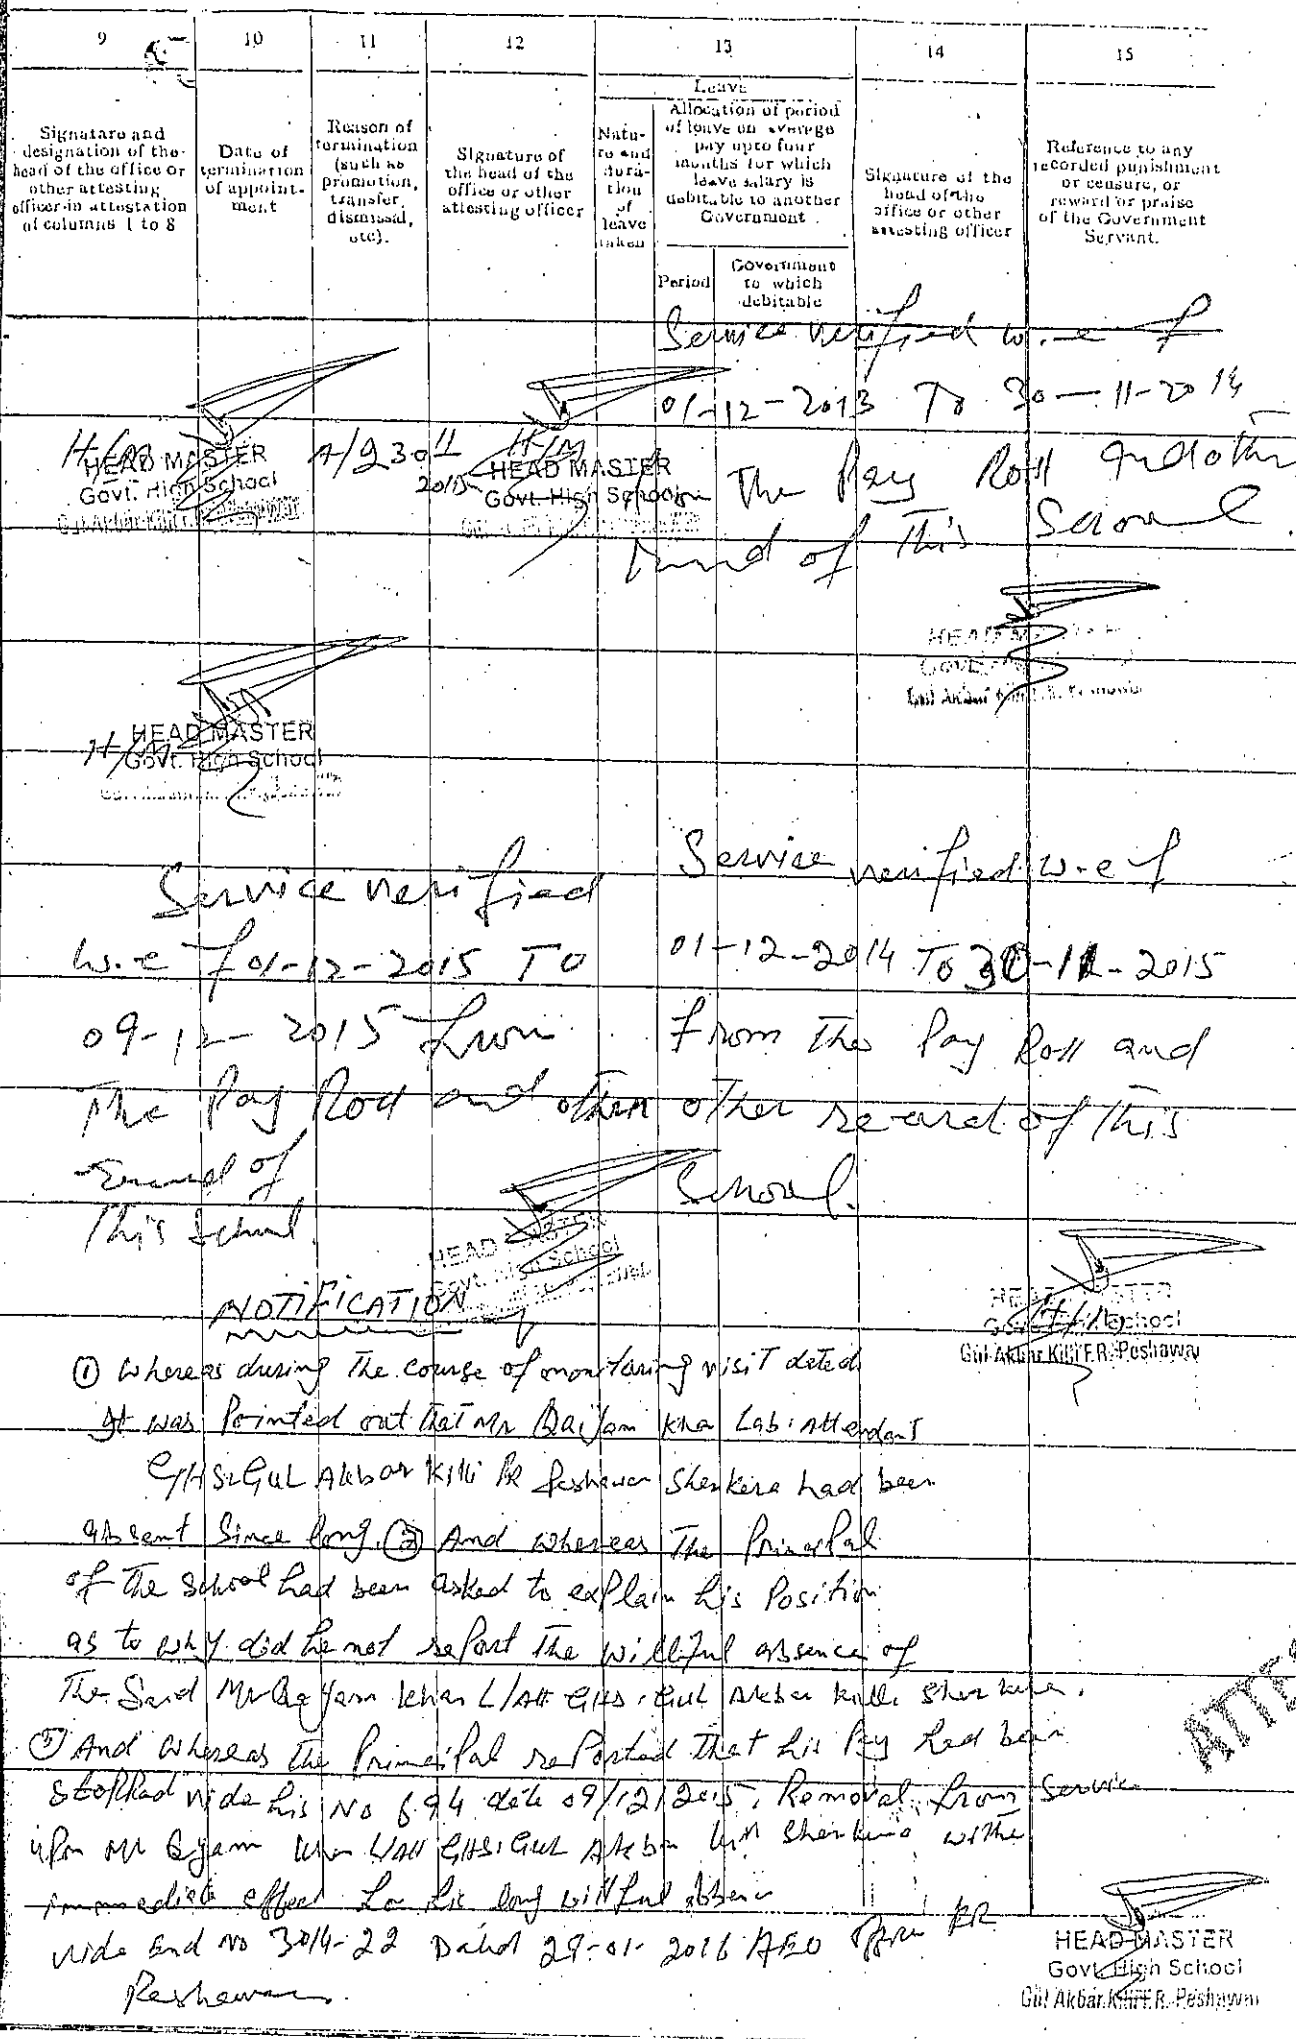 9 10 11 12 13 14 15
Signature and designation of the head of the office or other attesting officer in attestation of columns 1 to 8
Date of termination of appointment
Reason of termination (such as promotion, transfer, dismissal, etc).
Signature of the head of the office or other attesting officer
Leave
Nature and duration of leave taken
Allocation of period of leave on average pay upto four months for which leave salary is debitable to another Government
Period
Government to which debitable
Signature of the head of the office or other attesting officer
Reference to any recorded punishment or censure, or reward or praise of the Government Servant.
Service verified w.e f
01-12-2013 To 30-11-2014
The Pay Roll and other
of This School
H/M
HEAD MASTER
Govt. High School
2015
H/M
HEAD MASTER
Govt. High School
HEAD MASTER
H/M
HEAD MASTER
Govt. High School
Service verified
w.e f 01-12-2015 To
09-12-2015 from
The Pay Roll and other
record of
This School.
HEAD MASTER
Govt. High School
Service verified w.e f
01-12-2014 To 30-11-2015
From The Pay Roll and
other record of This
School.
HEAD MASTER
Govt. High School
H/M
Gul Akbar Killi F.R. Peshawar
NOTIFICATION
① Whereas during The course of monitoring visit dated
It was Pointed out that Mr Qaiyam Khan Lab: Attendant
GHS: Gul Akbar Killi FR Peshawar Sherkera had been
absent Since long. ② And whereas The Principal
of The School had been asked to explain his Position
as to why did he not report The willful absence of
The Said Mr Qayam Khan L/Att GHS: Gul Akbar Killi Sherkera.
③ And whereas The Principal reported that his Pay had been
stopped vide his No 694 date 09/12/2015. Removal from Service
upon Mr Qyam Khan L/Att GHS: Gul Akbar Killi Sherkera with
immediate effect for his long willful absence
vide End No 3014-22 Dated 29-01-2016 AEO Office FR
Peshawar.
HEAD MASTER
Govt. High School
Gul Akbar Killi F.R. Peshawar